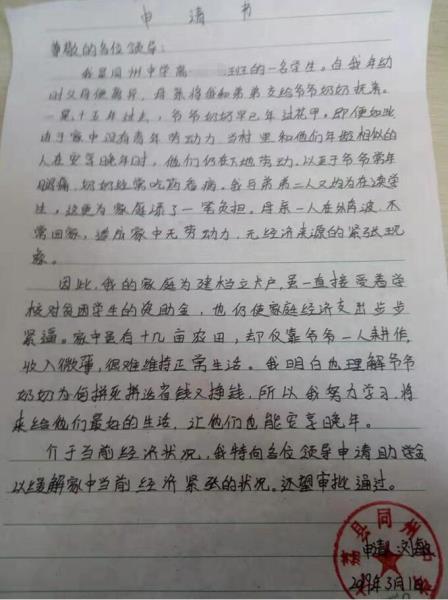 申请书
尊敬的各位领导：
我是同州中学高 班的一名学生。自我年幼
时父母便离异，母亲将我和弟弟交给爷爷奶奶抚养。
一晃十五年过去，爷爷奶奶早已年过花甲，即便如此
由于家中没有青年劳动力，当村里和他们年龄相似的
人在安享晚年时，他们仍在下地劳动，以至于爷爷常年
腰痛，奶奶经常吃药看病。我与弟弟二人又均为在读学
生，这更为家庭添了一 负担。母亲一人在外奔波，不
常回家，造成家中无劳动力，无经济来源的紧张现
象。
因此，我的家庭为建档立卡户，虽一直接受着学
校对贫困学生的资助金，也仍使家庭经济支出步步
紧逼。家中虽有十几亩农田，却仅靠爷爷一人耕作，
收入微薄，很难维持正常生活。我明白也理解爷爷
奶奶为何拼死拼活省钱又挣钱，所以我努力学习，将
来给他们最好的生活，让他们也能安享晚年。
介于当前经济状况，我特向各位领导申请助学金
以缓解家中当前经济紧张的状况。还望审批通过。
县同州
申请人 刘
2019年3月1日